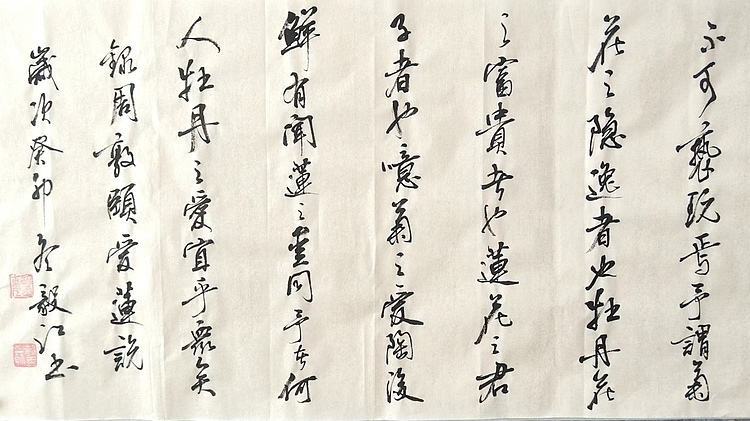 不可褻玩焉予謂菊
花之隐逸者也牡丹花
之富貴者也蓮花之君
子者也噫菊之愛陶後
鮮有聞蓮之愛同予者何
人牡丹之愛宜乎衆矣
錄周敦頤愛蓮說
歲次癸卯冬毅江书